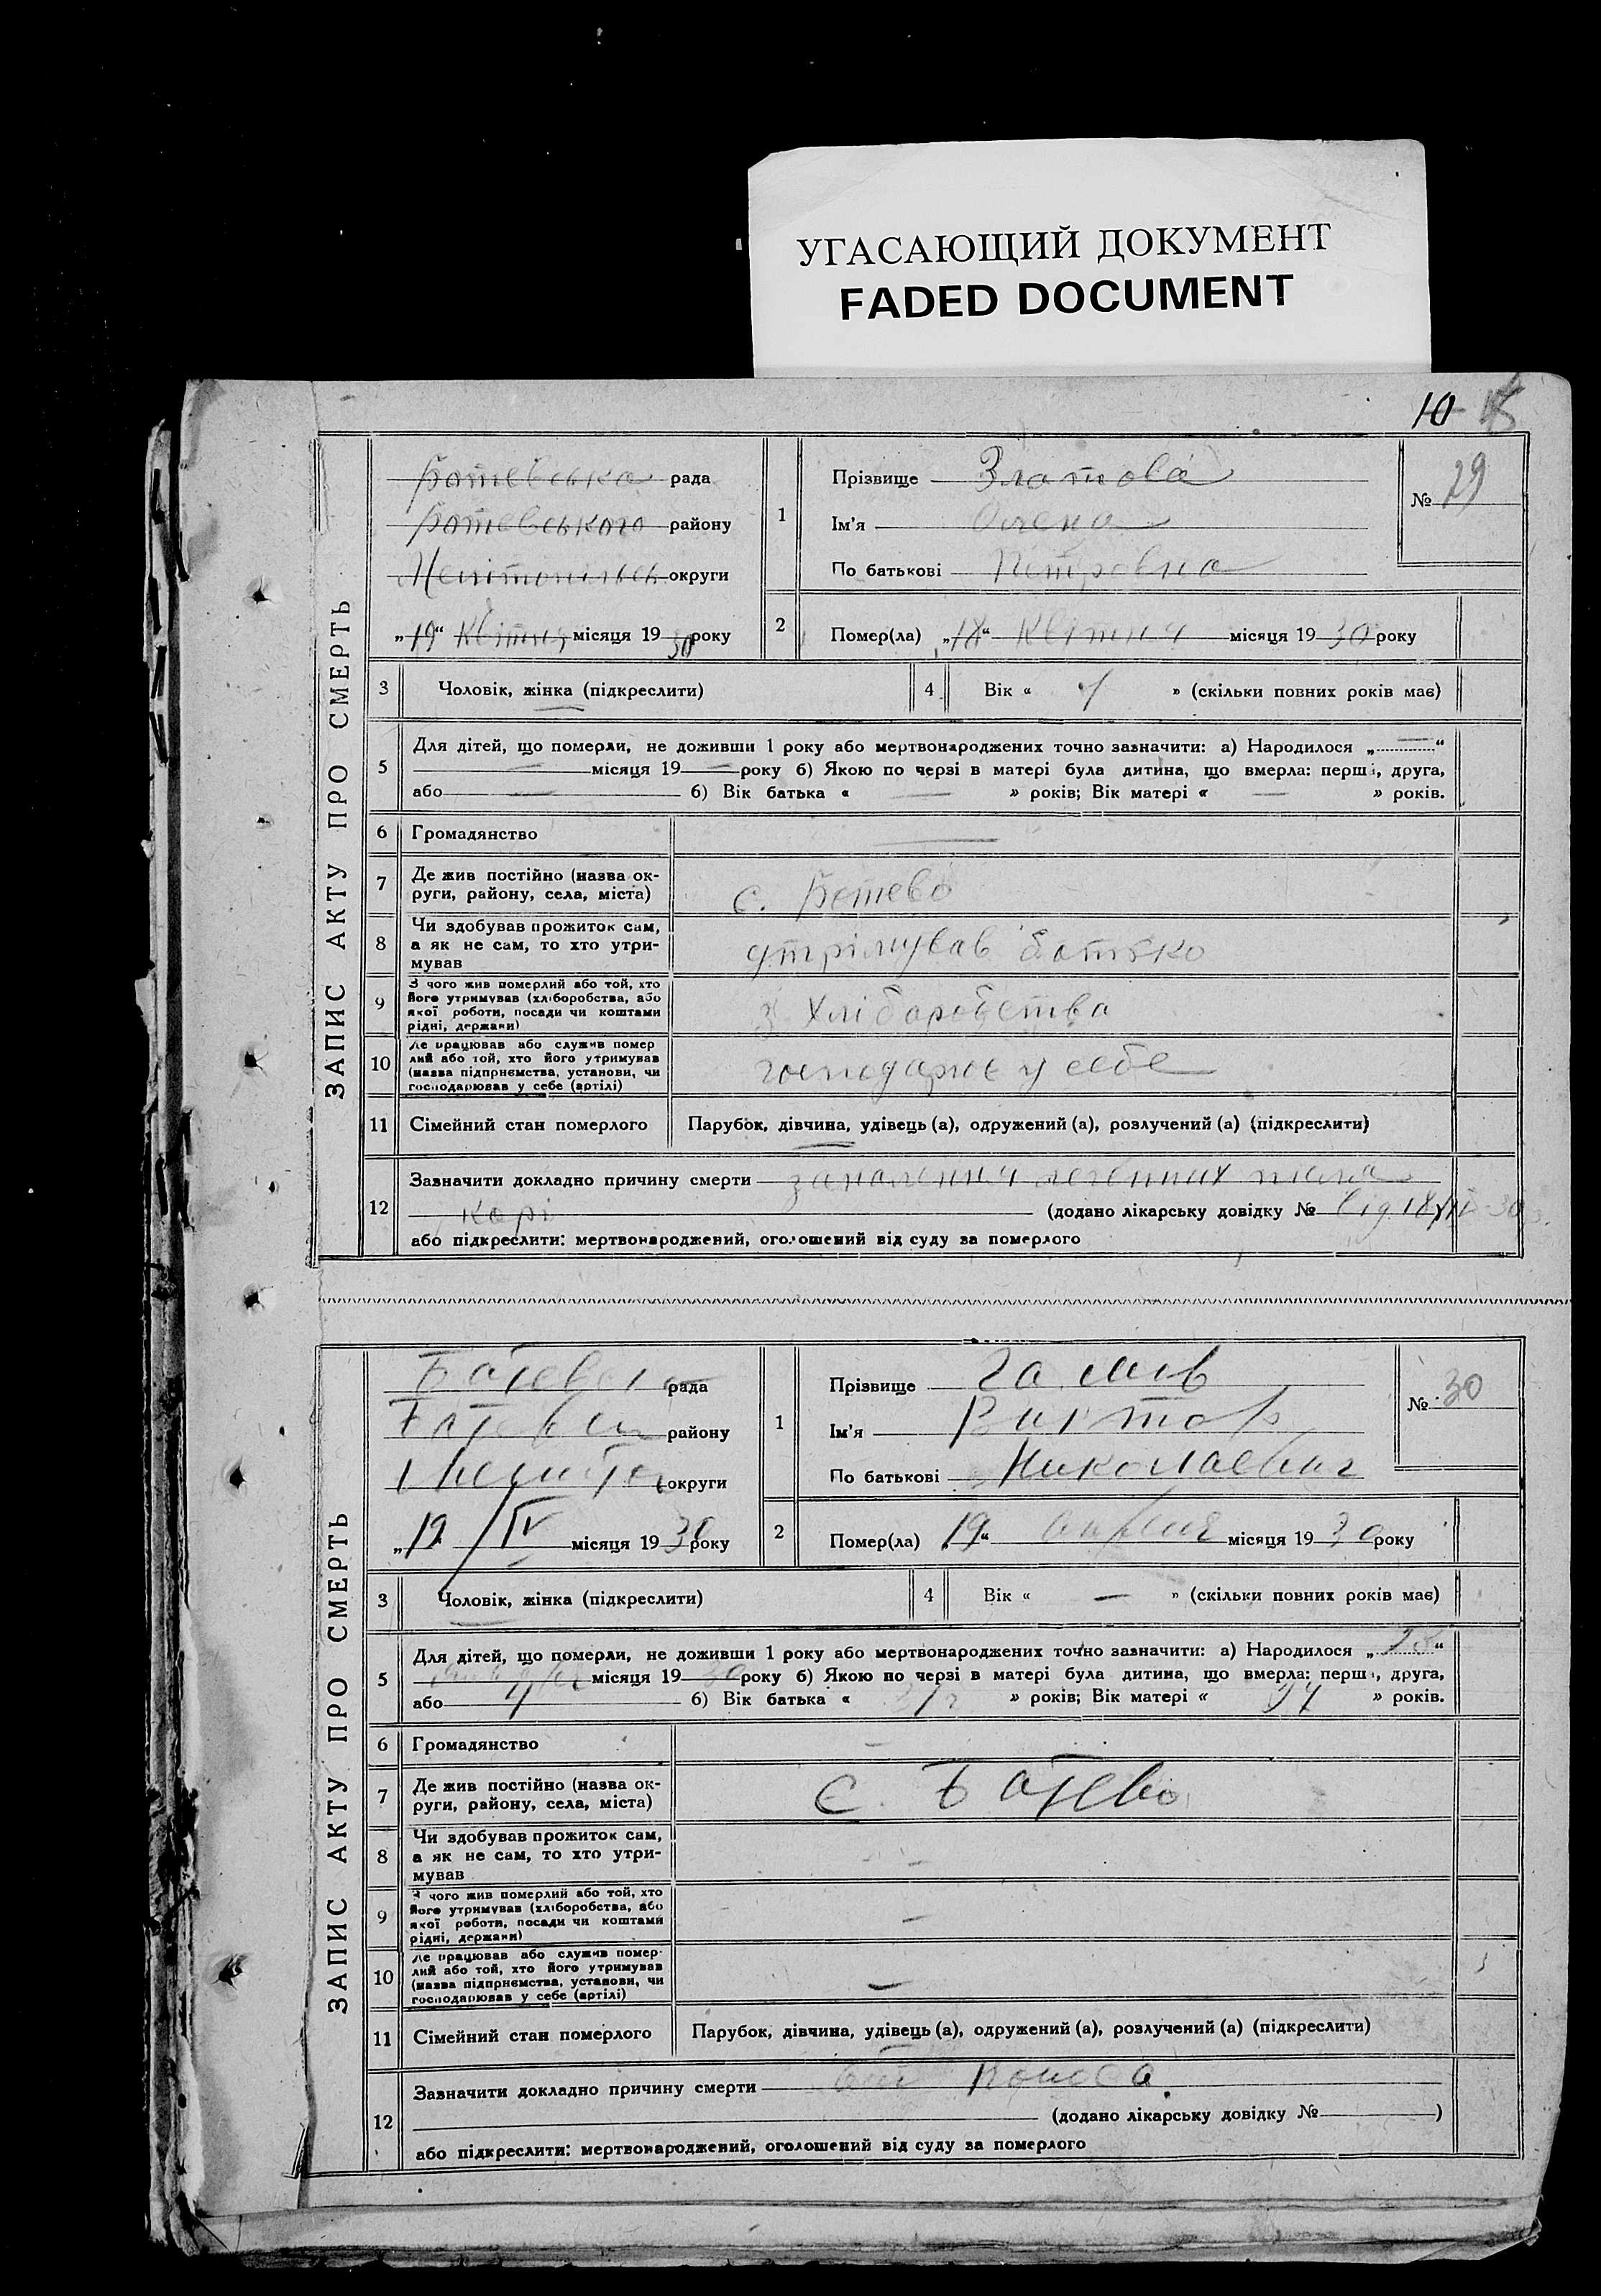 УГАСАЮЩИЙ ДОКУМЕНТ
FADED DOCUMENT
10
ЗАПИС АКТУ ПРО СМЕРТЬ
Ботевська рада
Ботевського району
Мелітопільськ округи
„19“ Квітня місяця 1930 року
1
Прізвище Златова
Ім'я Олена
По батькові Петровна
№ 29
2
Помер(ла) „18“ Квітня місяця 1930 року
3 Чоловік, жінка (підкреслити)
4 Вік « » (скільки повних років має)
5 Для дітей, що померли, не доживши 1 року або мертвонароджених точно зазначити: а) Народилося „—“
— місяця 19— року б) Якою по черзі в матері була дитина, що вмерла: перша, друга,
або — б) Вік батька « — » років; Вік матері « — » років.
6 Громадянство —
7 Де жив постійно (назва ок-
руги, району, села, міста)
с. Ботево
8 Чи здобував прожиток сам,
а як не сам, то хто утри-
мував
утрімував батько
9 З чого жив померлий або той, хто
його утримував (хліборобства, або
якої роботи, посади чи коштами
рідні, держави)
з хліборобства
10 Де працював або служив помер
лий або той, хто його утримував
(назва підприємства, установи, чи
господарював у себе (артілі)
господарює у себе
11 Сімейний стан померлого Парубок, дівчина, удівець (а), одружений (а), розлучений (а) (підкреслити)
12 Зазначити докладно причину смерти запалення легенних
корі (додано лікарську довідку № від 18/IV-30
або підкреслити: мертвонароджений, оголошений від суду за померлого
ЗАПИС АКТУ ПРО СМЕРТЬ
рада
району
округи
„19“ IV місяця 1930 року
1
Прізвище
Ім'я Виктор
По батькові Николаевич
№ 30
2
Помер(ла) „19“ апреля місяця 1930 року
3 Чоловік, жінка (підкреслити)
4 Вік « — » (скільки повних років має)
5 Для дітей, що померли, не доживши 1 року або мертвонароджених точно зазначити: а) Народилося „ “
місяця 1930 року б) Якою по черзі в матері була дитина, що вмерла: перша, друга,
або 4 б) Вік батька « » років; Вік матері « » років.
6 Громадянство —
7 Де жив постійно (назва ок-
руги, району, села, міста)
с. Ботево
8 Чи здобував прожиток сам,
а як не сам, то хто утри-
мував
—
9 З чого жив померлий або той, хто
його утримував (хліборобства, або
якої роботи, посади чи коштами
рідні, держави)
—
10 Де працював або служив помер-
лий або той, хто його утримував
(назва підприємства, установи, чи
господарював у себе (артілі)
—
11 Сімейний стан померлого Парубок, дівчина, удівець (а), одружений (а), розлучений (а) (підкреслити)
12 Зазначити докладно причину смерти
(додано лікарську довідку № )
або підкреслити: мертвонароджений, оголошений від суду за померлого